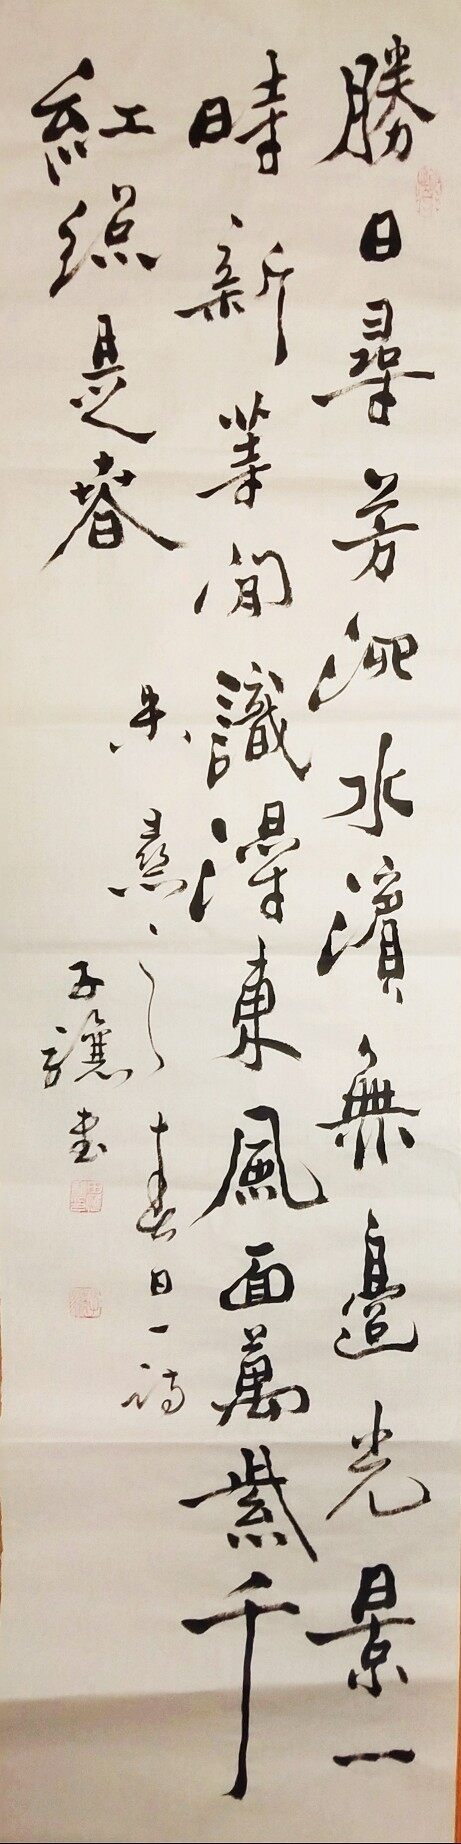 勝日尋芳泗水濱無邊光景一
時新等閒識得東風面萬紫千
紅總是春
朱熹之春日一詩
子驤書